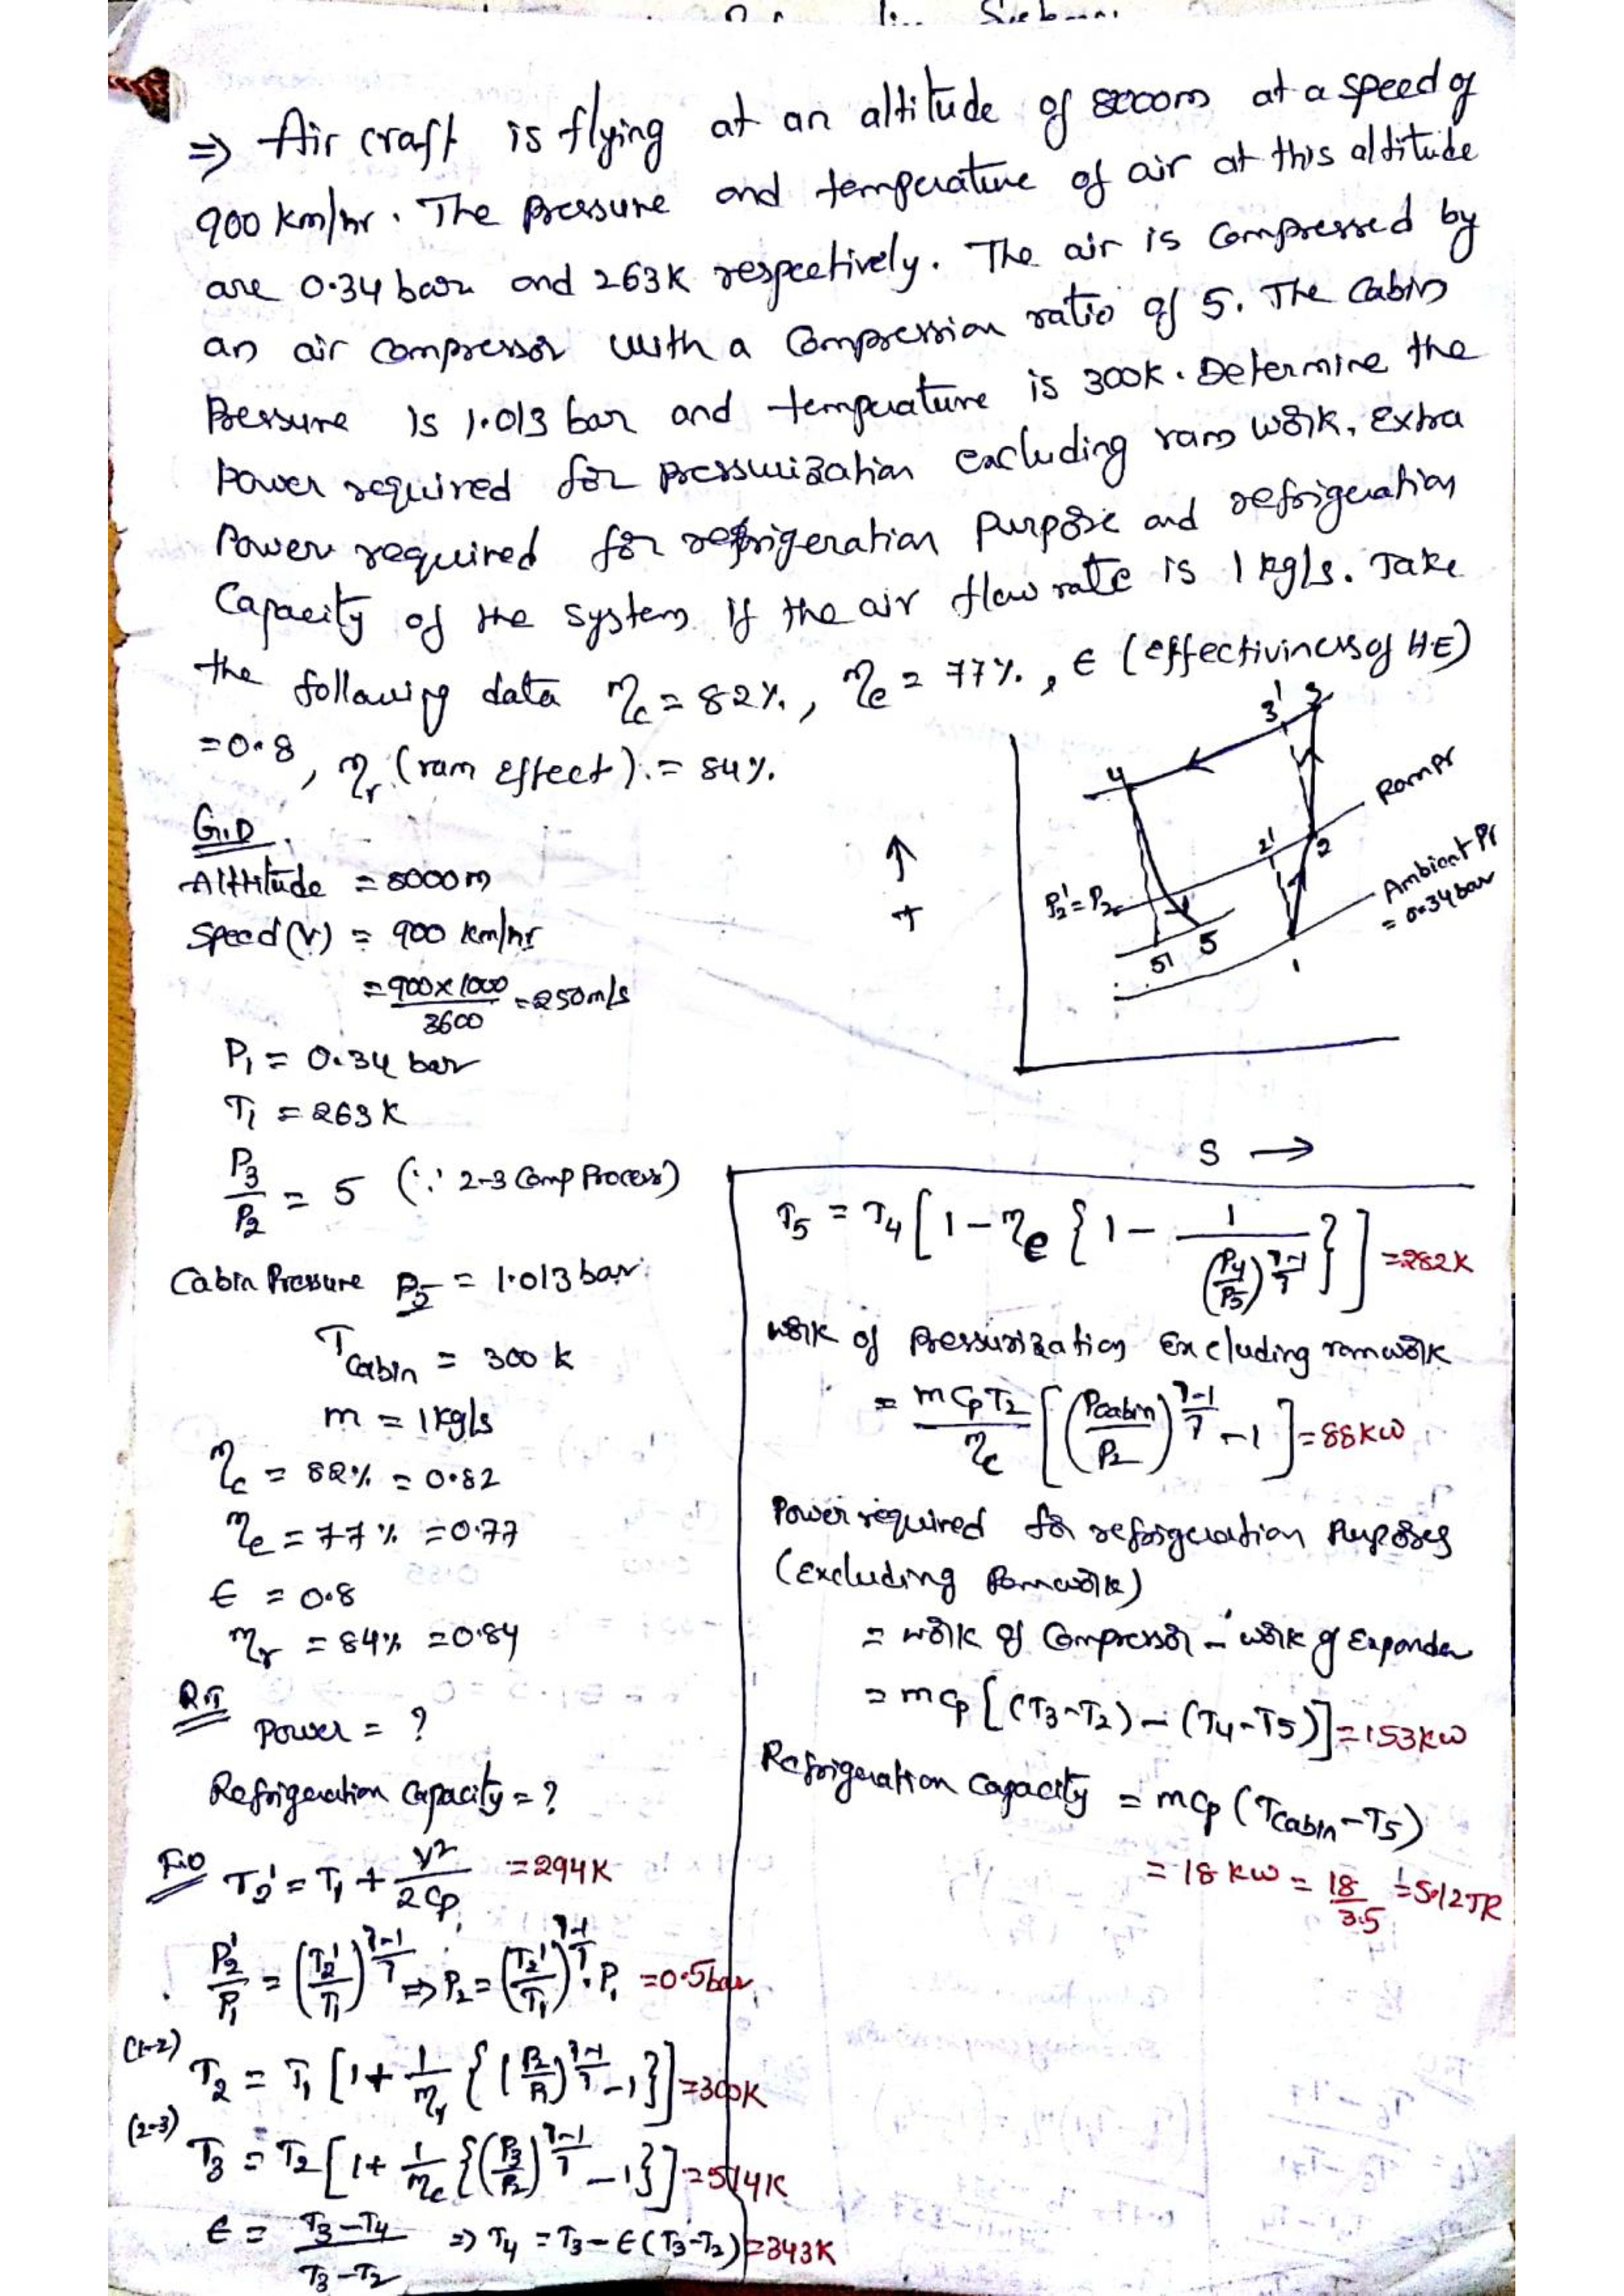 ⇒ Air craft is flying at an altitude of 8000m at a speed of
900 km/hr. The pressure and temperature of air at this altitude
are 0.34 bar and 263K respectively. The air is compressed by
an air compressor with a compression ratio of 5. The cabin
Pressure is 1.013 bar and temperature is 300K. Determine the
power required for pressurization excluding ram work, Extra
Power required for refrigeration purpose and refrigeration
Capacity of the system if the air flow rate is 1 kg/s. Take
the following data ηc = 82%, ηe = 77%, ϵ (effectiviness of H.E)
= 0.8, ηr (ram Effect) = 84%.
3' 3
4
Ram Pr
2' 2
P2' = P2
Ambient Pr
= 0.34 bar
5' 5
1
↑
T
S →
G.D
Altitude = 8000m
Speed (V) = 900 km/hr
= 900 x 1000 / 3600 = 250 m/s
P1 = 0.34 bar
T1 = 263 K
P3/P2 = 5 (∵ 2-3 Comp Process)
Cabin Pressure P5 = 1.013 bar
T Cabin = 300 K
m = 1 kg/s
ηc = 82% = 0.82
ηe = 77% = 0.77
ϵ = 0.8
ηr = 84% = 0.84
Power = ?
Refrigeration Capacity = ?
T2' = T1 + V²/2Cp = 294K
P2'/P1 = (T2'/T1)^(γ-1/γ) ⇒ P2 = (T2'/T1)^(γ-1/γ) . P1 = 0.5 bar
(1-2) T2 = T1 [1 + 1/ηr {(P2/P1)^(γ-1/γ) - 1}] = 300K
(2-3) T3 = T2 [1 + 1/ηc {(P3/P2)^(γ-1/γ) - 1}] = 514K
ϵ = T3-T4 / T3-T2 ⇒ T4 = T3 - ϵ(T3-T2) = 343K
T5 = T4 [1 - ηe {1 - 1/(P4/P5)^(γ-1/γ)}] = 282K
work of Pressurization Excluding ram work
= m Cp T2 / ηc [(Pcabin/P2)^(γ-1/γ) - 1] = 88 KW
Power required for refrigeration Purposes
(Excluding Ramwork)
= work of Compressor - work of Expander
= m Cp [(T3-T2) - (T4-T5)] = 153 KW
Refrigeration Capacity = m Cp (Tcabin - T5)
= 18 KW = 18/3.5 = 5.12 TR